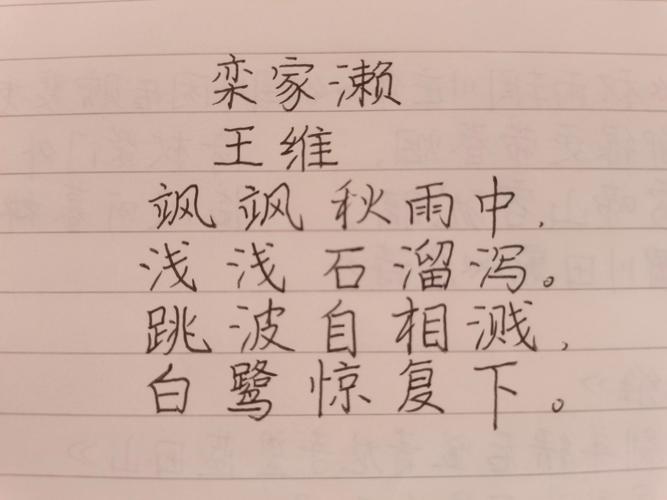 栾家濑
王维
飒飒秋雨中，
浅浅石溜泻。
跳波自相溅，
白鹭惊复下。